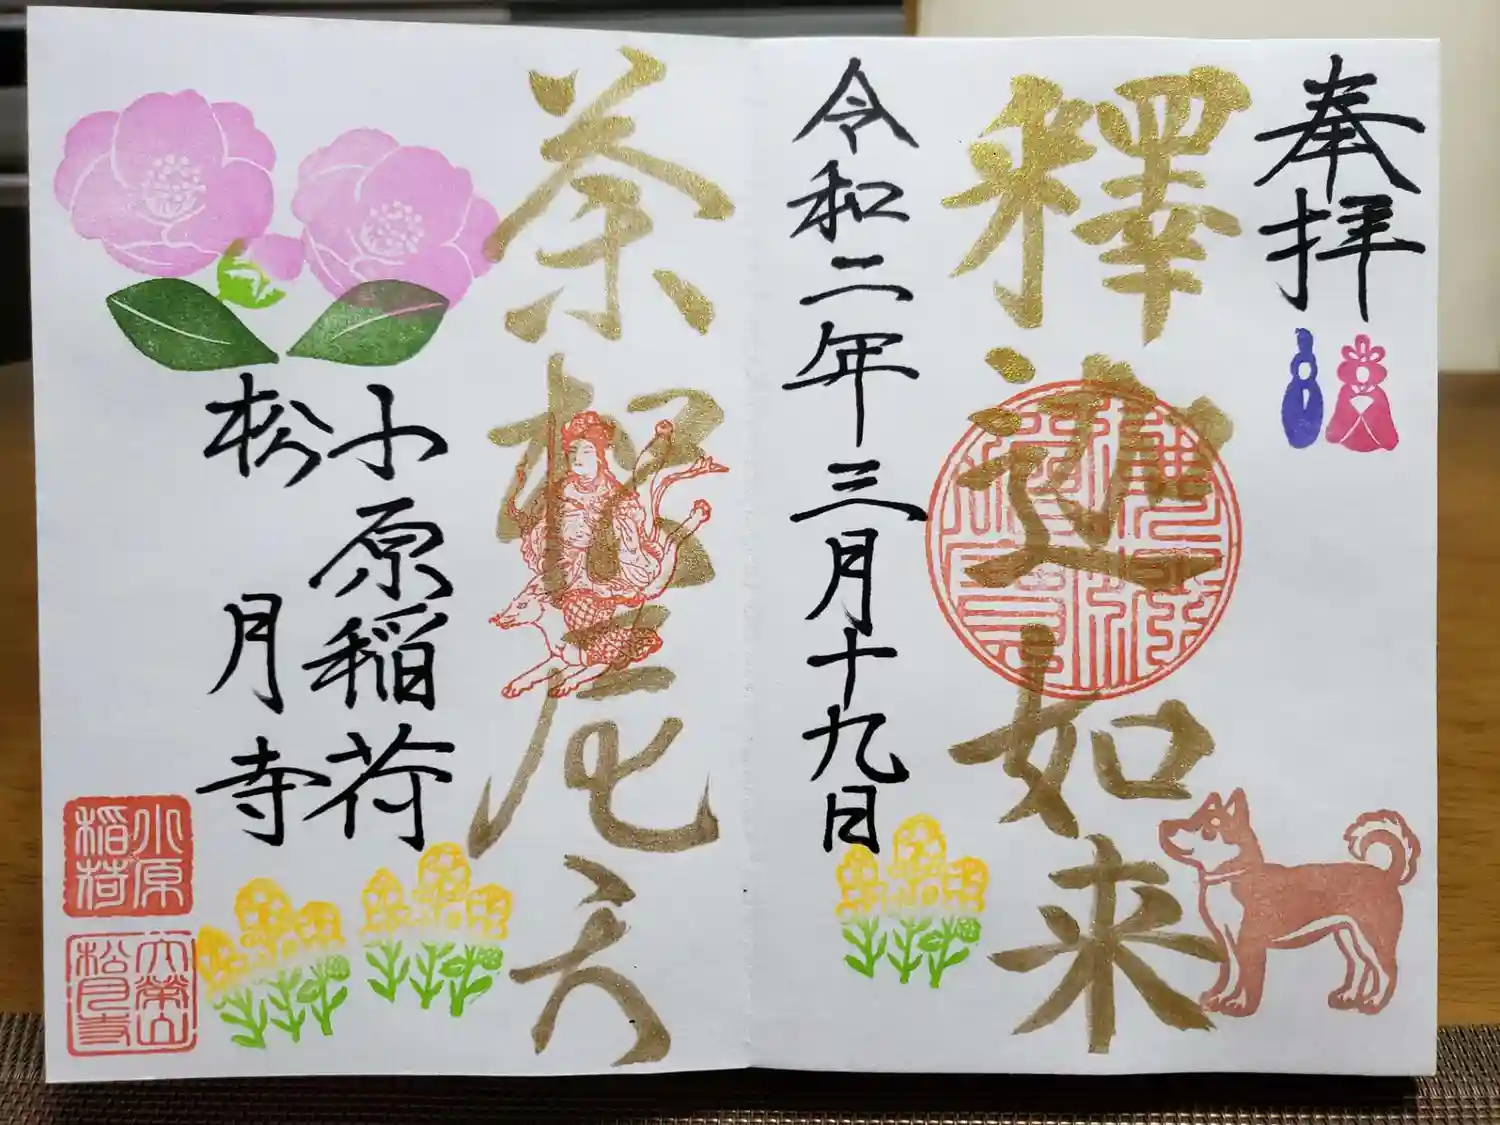 奉拝
釋迦如来
令和二年三月十九日
荼枳尼天
小原稲荷
松月寺
小原
稲荷
松月寺